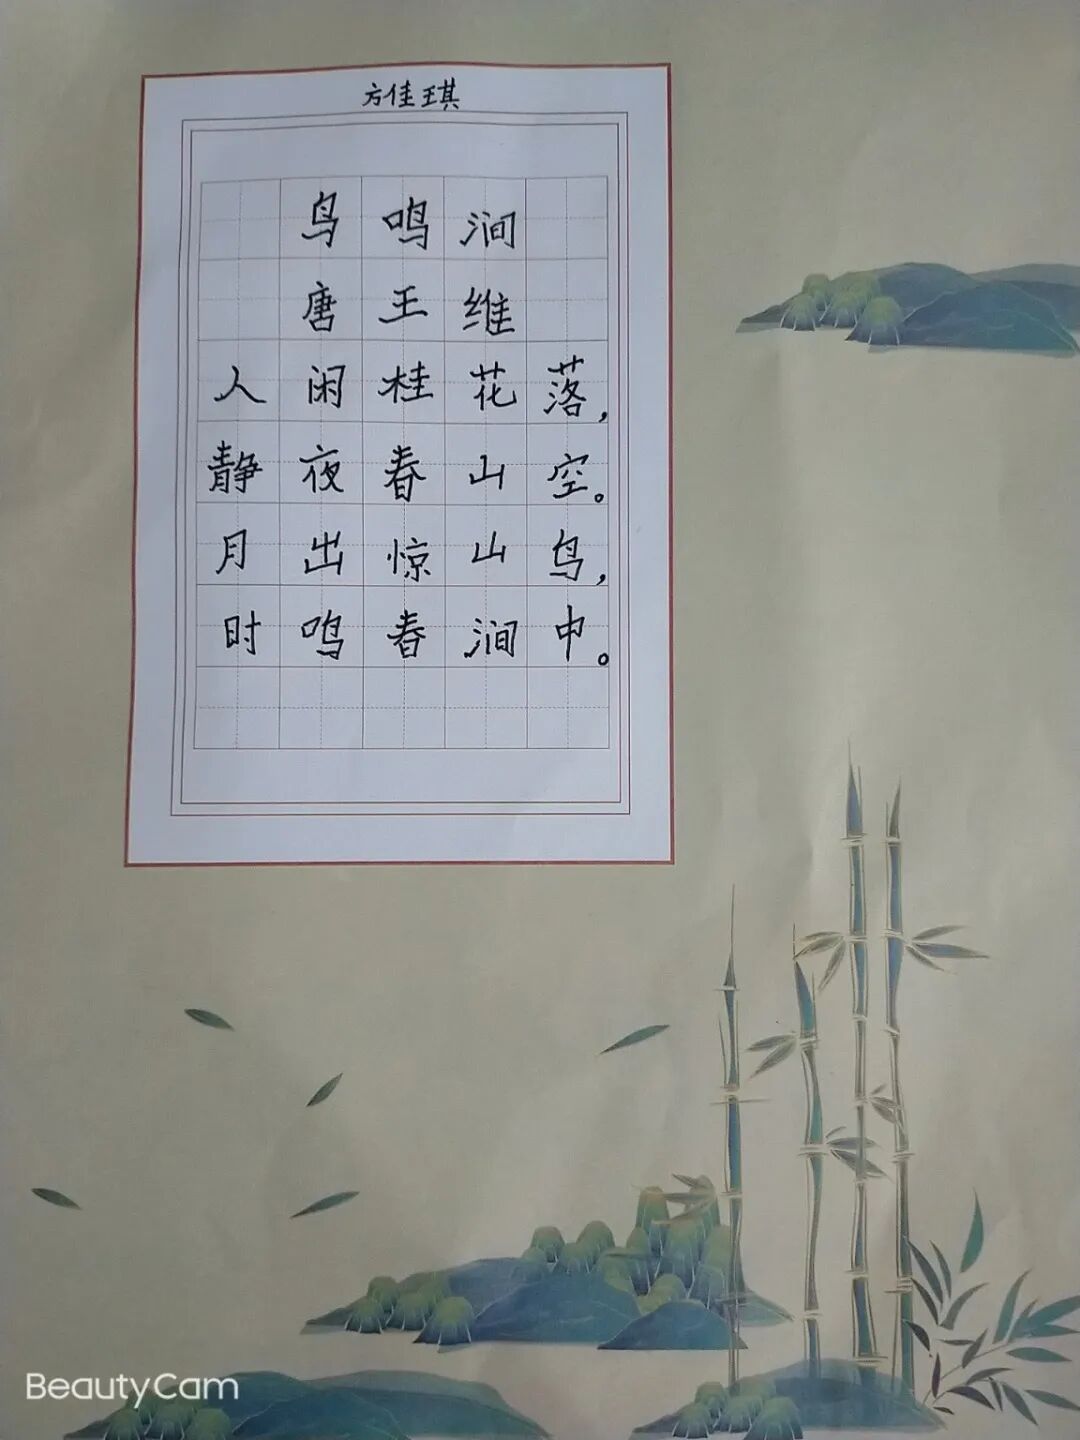 方佳琪
鸟鸣涧
唐王维
人闲桂花落，
静夜春山空。
月出惊山鸟，
时鸣春涧中。
BeautyCam